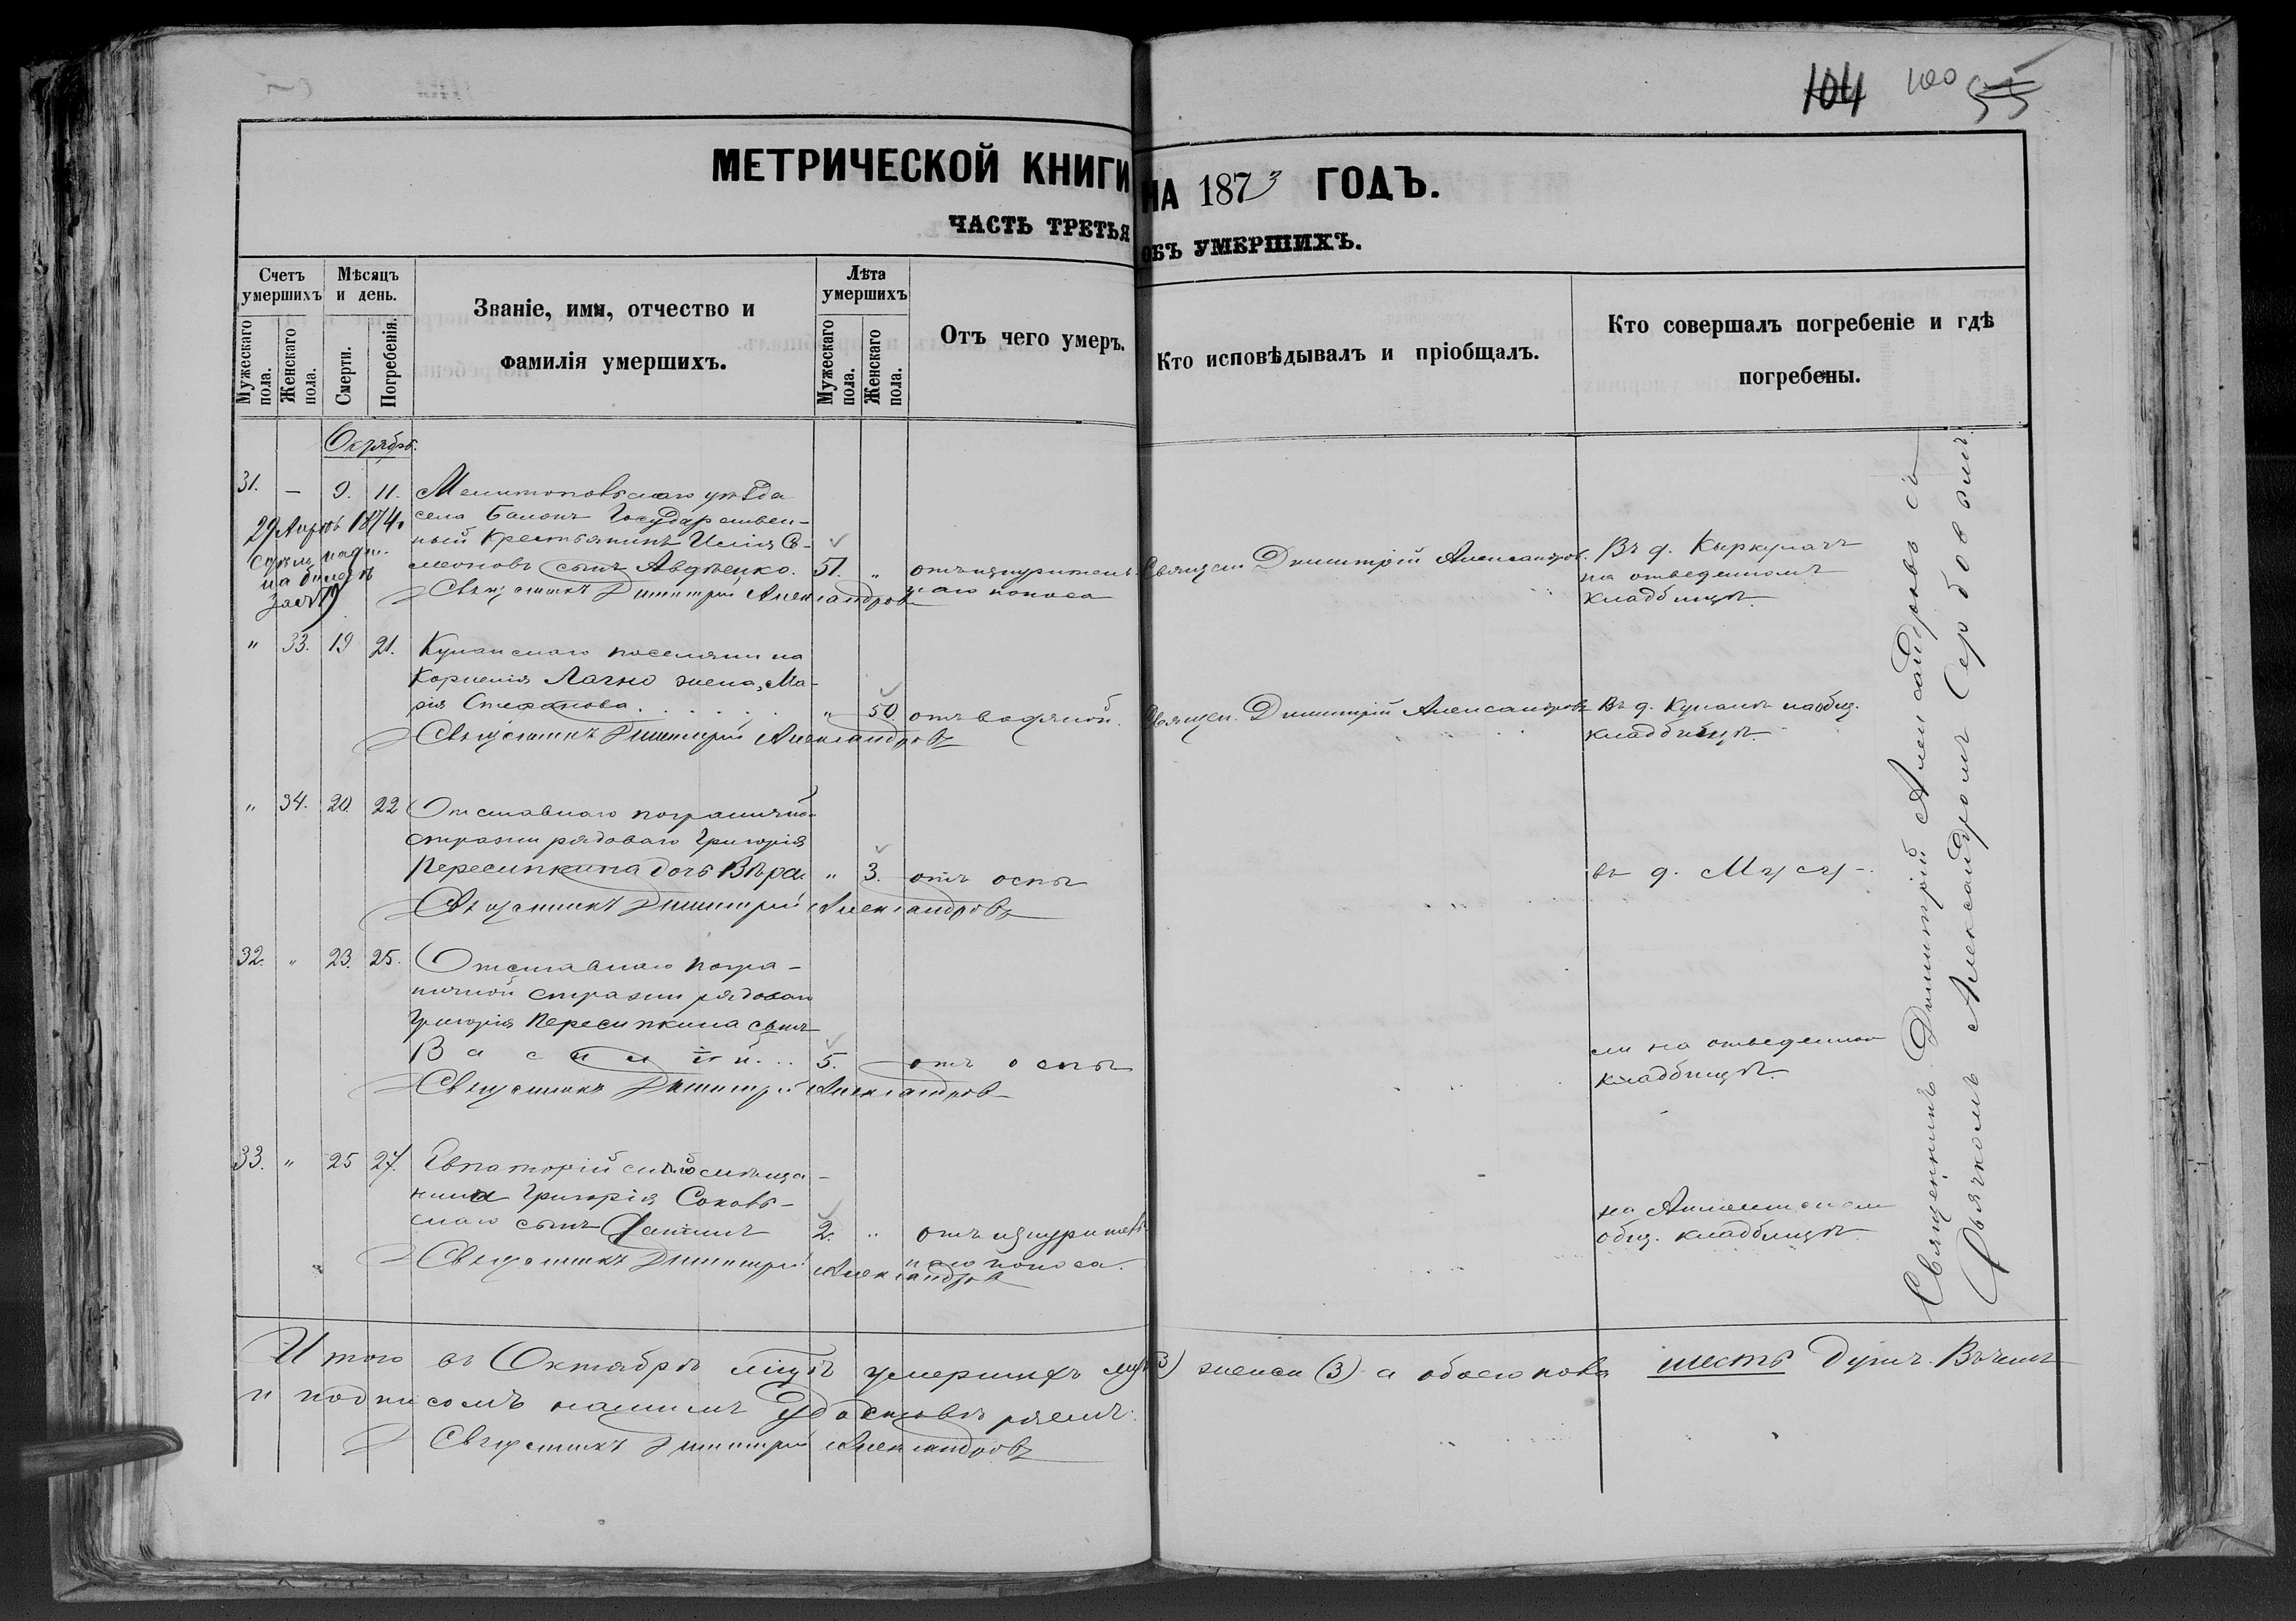 104 100 55
МЕТРИЧЕСКОЙ КНИГИ НА 1873 ГОДЪ.
ЧАСТЬ ТРЕТЬЯ ОБЪ УМЕРШИХЪ.
Счетъ умершихъ
Мужескаго пола.
Женскаго пола.
Мѣсяцъ и день.
Смерти.
Погребенія.
Званіе, имя, отчество и
фамилія умершихъ.
Лѣта умершихъ
Мужескаго пола.
Женскаго пола.
Отъ чего умеръ.
Кто исповѣдывалъ и пріобщалъ.
Кто совершалъ погребеніе и гдѣ
погребены.
Октябрь.
31. — 9. 11. Мелитопольскаго уѣзда
села Балокъ Государствен-
ный Крестьянинъ Илія Си-
меоновъ сынъ Авдѣенко. 51. „ отъ изнуритель-
наго поноса
Священ. Димитрій Александров.
Въ д. Кыркулачъ
на отведенномъ
кладбищѣ.
29 Апрѣл 1874.
на билетъ
Священникъ Димитрій Александровъ
„ 33. 19 21. Кунанскаго поселянина
Корнелія Лагно жена, Ма-
рія Стефанова. „ 50. отъ водяной.
Священ. Димитрій Александровъ
Въ д. Кунанъ на общ.
кладбищѣ.
Священникъ Димитрій Александровъ
„ 34. 20 22 Отставнаго погранично
стражи рядоваго Григорія
Пересипкина дочь Вѣра. „ 3. отъ оспы
въ д. Мусу-
Священникъ Димитрій Александровъ
32. „ 23. 25. Отставнаго погра-
ничной стражи рядоваго
Григорія Пересипкина сынъ
Василій. 5. отъ оспы
ли на отведенном
кладбищѣ.
Священникъ Димитрій Александровъ
33. „ 25 27. Евпаторійскаго мѣща-
нина Григорія Соковь-
скаго сынъ 2. „ отъ изнурител.
наго поноса.
на
общ. кладбищѣ.
Священникъ Димитрій Александровъ
Священникъ Димитрій Александровъ съ
Дьячкомъ Александромъ Сербовымъ.
Итого въ Октябрѣ мцѣ умершихъ муж (3) женск (3) а обоего пола шесть душъ. Въ чемъ
и подписомъ нашимъ Удостовѣряемъ.
Священникъ Димитрій Александровъ